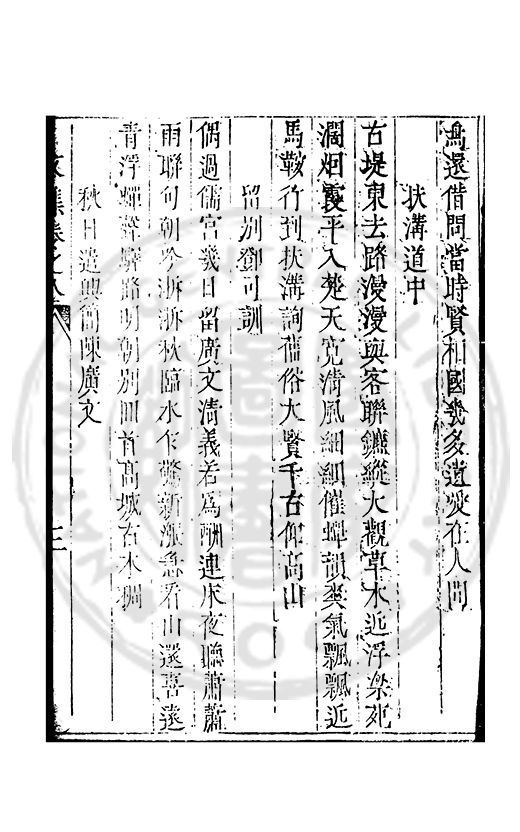 還借問當時賢相國幾多遺愛在人間
扶溝道中
古堤東去路漫漫與客聯鑣縱大觀草木近浮梁死
濶烟霞平入楚天寬清風細細催蟬韻爽氣飄飄近
馬鞍行到扶溝詢舊俗大賢千古仰高山
留別鄧司訓
偶過儒宮幾日留廣文清義若為酬連床夜聽蕭蕭
雨聯句朝吟淅淅秋臨水乍驚新漲急看山還喜遠
青浮蟬聲驛路明朝別回首高城古木稠
秋日遣興簡陳廣文
集卷之八
三